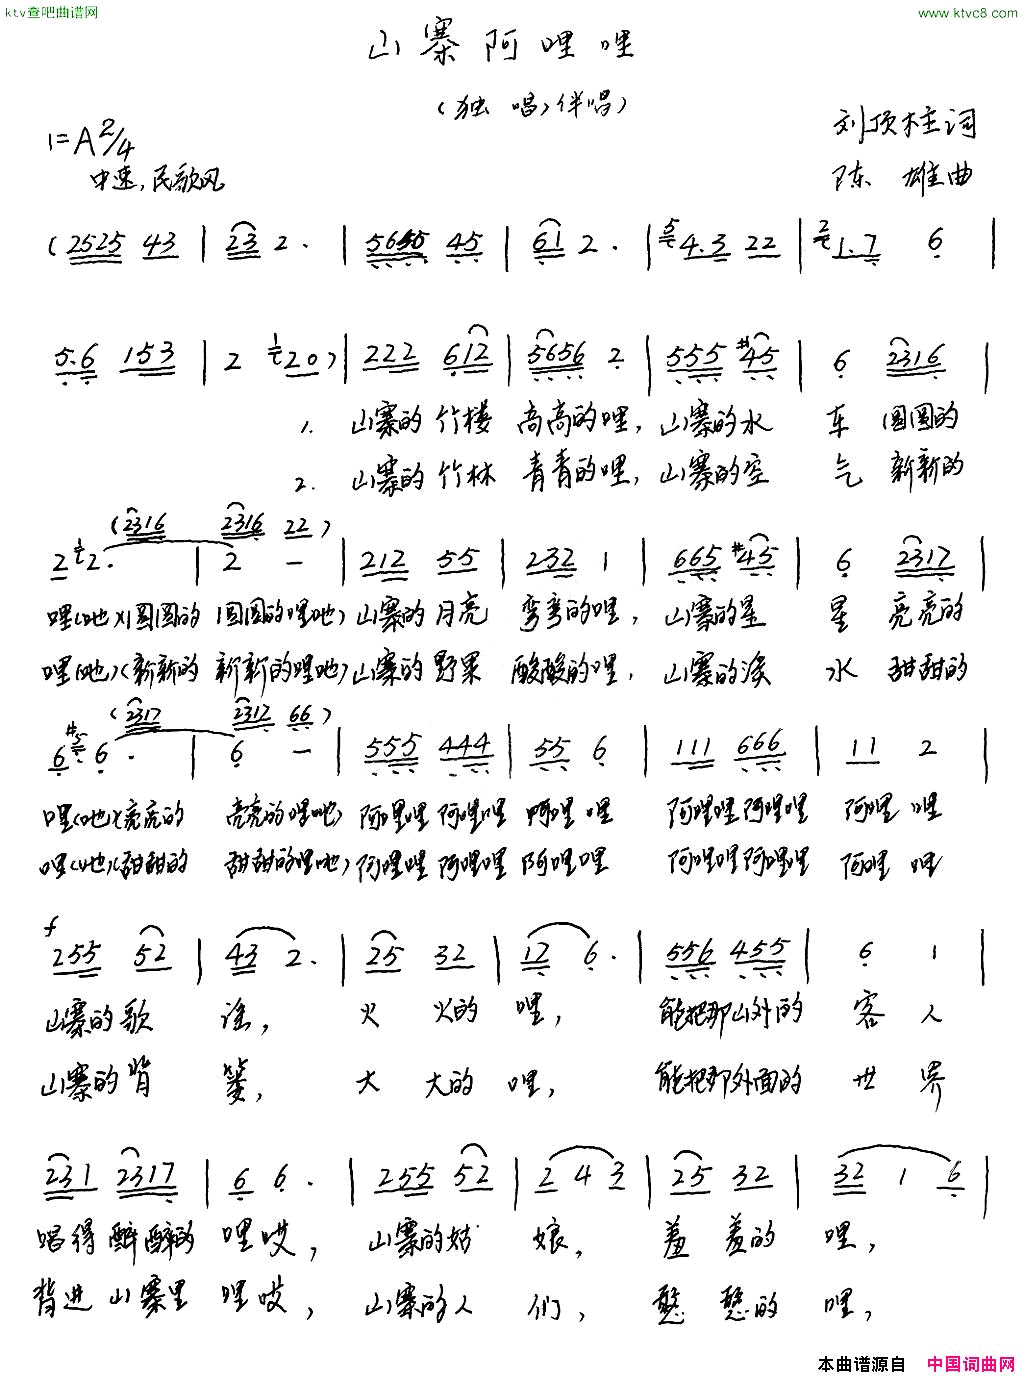 ktv查吧曲谱网
www.ktvc8.com
山寨阿哩哩
(独唱、伴唱)
1=A 2/4
中速,民歌风
刘顶柱词
陈雄曲
(2525 43 | 23 2. | 5655 45 | 61 2. | 5 4.3 22 | 2 1.7 6 |
5.6 153 | 2 1 20) | 222 612 | 5656 2 | 555 #45 | 6 2316 |
1. 山寨的 竹楼 高高的哩, 山寨的水 车 圆圆的
2. 山寨的 竹林 青青的哩, 山寨的空 气 新新的
(2316 2316 22)
2 1 2. | 2 - | 212 55 | 232 1 | 665 #45 | 6 2317 |
哩(吔)(圆圆的 圆圆的哩吔) 山寨的 月亮 弯弯的哩, 山寨的星 星 亮亮的
哩(吔)(新新的 新新的哩吔) 山寨的 野果 酸酸的哩, 山寨的 水 甜甜的
(2317 2312 66)
6 #5 6. | 6 - | 555 444 | 55 6 | 111 666 | 11 2 |
哩(吔)(亮亮的 亮亮的哩吔) 阿哩哩 阿哩哩 阿哩 哩 阿哩哩 阿哩哩 阿哩 哩
哩(吔)(甜甜的 甜甜的哩吔) 阿哩哩 阿哩哩 阿哩哩 阿哩哩 阿哩哩 阿哩 哩
f
255 52 | 43 2. | 25 32 | 12 6. | 556 455 | 6 1 |
山寨的歌 谣, 火 火的 哩, 能把那山外的 客 人
山寨的背 篓, 大 大的 哩, 能把那外面的 世 界
231 2317 | 6 6. | 255 52 | 2 4 3 | 25 32 | 32 1 6 |
唱得 醉醉的 哩哎, 山寨的姑 娘, 羞 羞的 哩,
背进 山寨里 哩哎, 山寨的人 们, 憨 憨的 哩,
本曲谱源自 中国词曲网